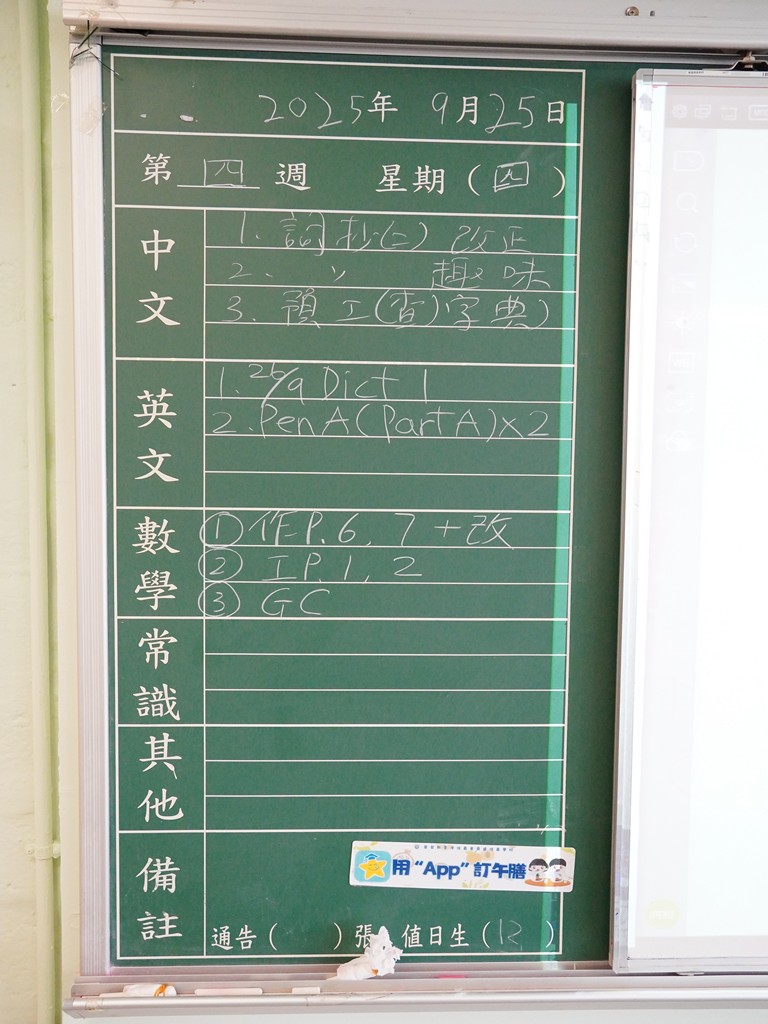 2025年 9月25日
第 四 週 星期（四）
中文
1. 詞抄(二) 改正
2. 〃 趣味
3. 預工(查)字典)
英文
1. 26/9 Dict 1
2. Pen A (Part A) x 2
數學
① 作P.6, 7 + 改
② 工P.1, 2
③ GC
常識
其他
備註
用 “App” 訂午膳
通告（ ）張 值日生（12）